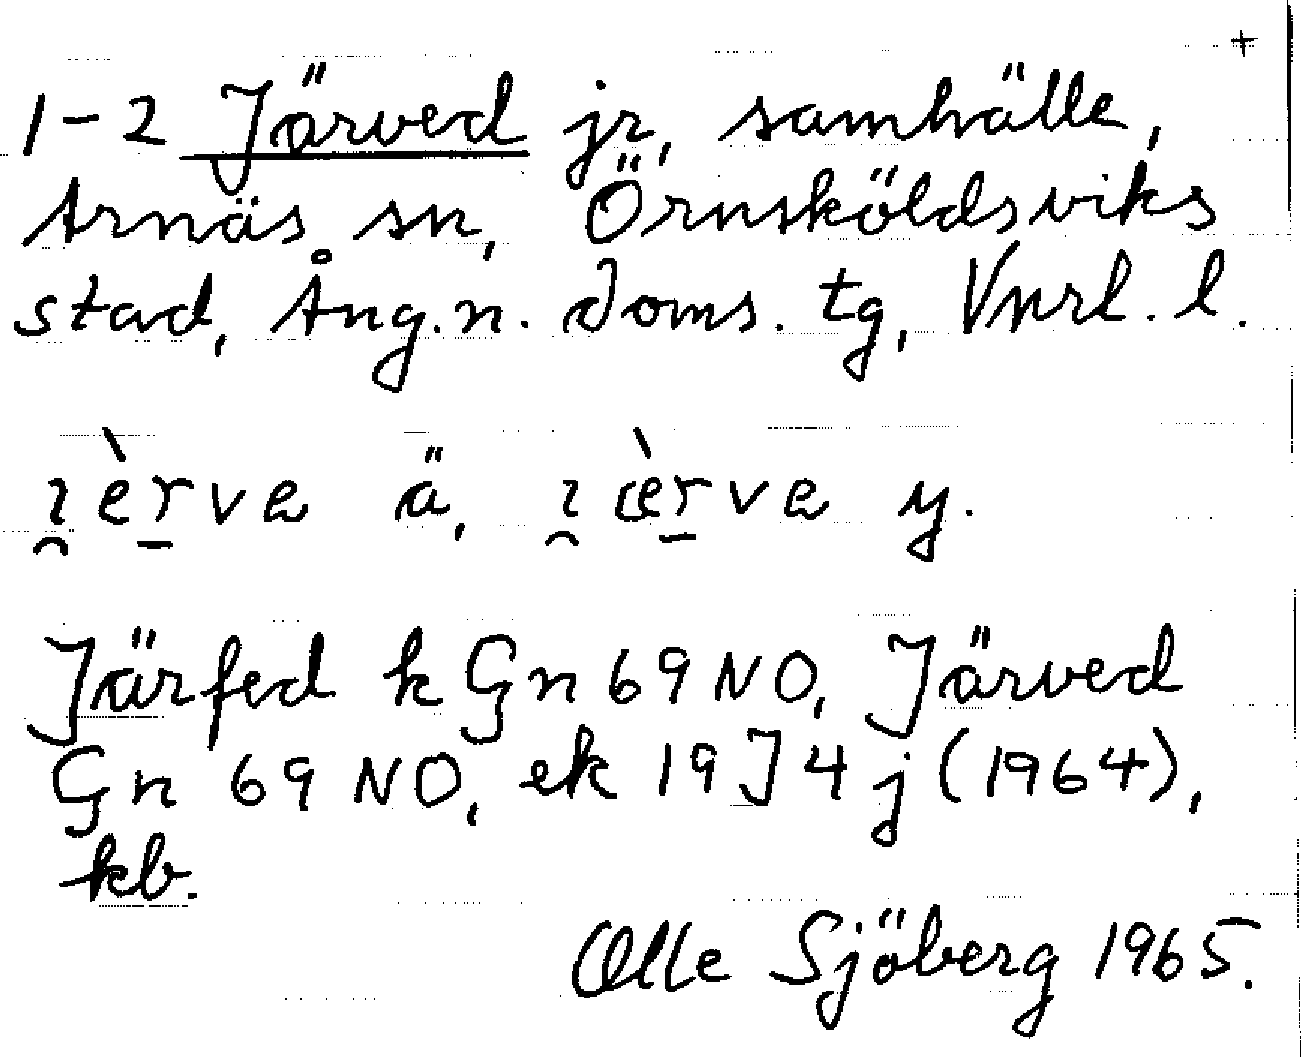 +
1-2 Järved jr, samhälle,
Arnäs sn, Örnsköldsviks
stad, Ång.n. doms. tg, Vnrl. l.
ı̯èr̠ve ä, ı̯æ̀r̠ve y.
Järfed k Gn 69 NO, Järved
Gn 69 NO, ek 19 J 4 j (1964),
kb.
Olle Sjöberg 1965.